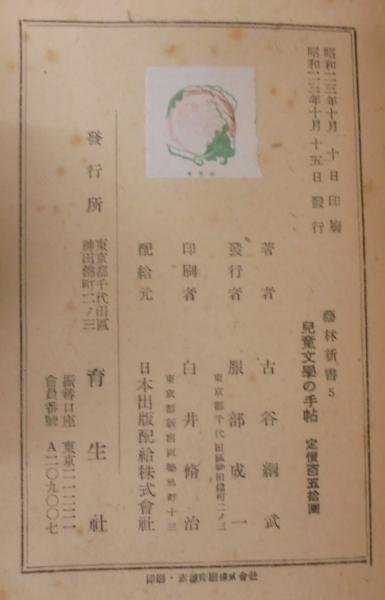 昭和二三年十月 十日 印刷
昭和二三年十月 十五日 發行
藝林新書 5
兒童文學の手帖 定價百五拾圓
著者 古谷綱武
發行者 服部成一
東京都千代田區神田錦町二ノ三
印刷者 白井脩治
東京都新宿區築地町十三
配給元 日本出版配給株式會社
發行所 東京都千代田區
神田錦町二ノ三
育生社
振替口座 東京二一二二一
會員番號 A二〇九〇〇七